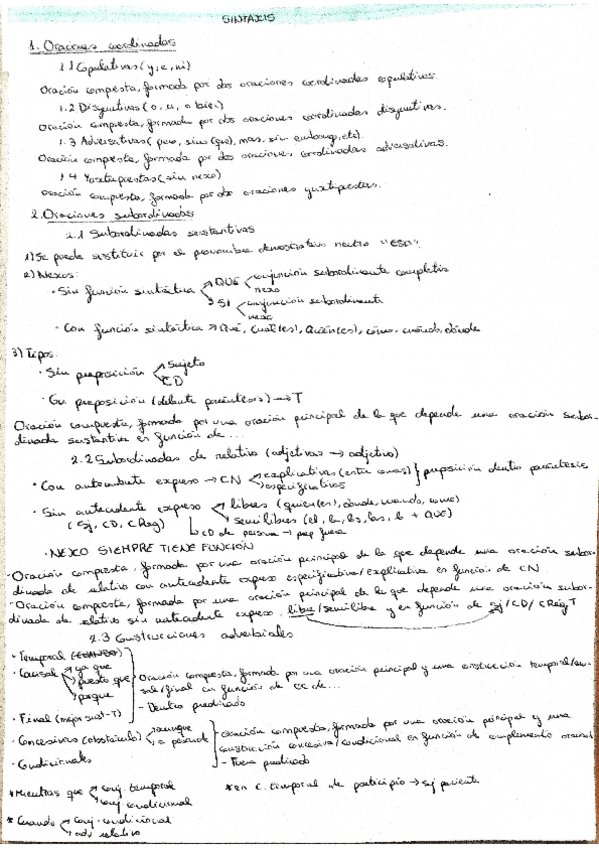 SINTAXIS
1. Oraciones coordinadas
1.1 Copulativas (y, e, ni)
Oración compuesta, formada por dos oraciones coordinadas copulativas.
1.2 Disyuntivas (o, u, o bien)
Oración compuesta, formada por dos oraciones coordinadas disyuntivas.
1.3 Adversativas (pero, sino (que), mas, sin embargo, etc).
Oración compuesta, formada por dos oraciones coordinadas adversativas.
1.4 Yuxtapuestas (sin nexo)
Oración compuesta, formada por dos oraciones yuxtapuestas.
2. Oraciones subordinadas
2.1 Subordinadas sustantivas
1) Se puede sustituir por el pronombre demostrativo neutro "ESO".
2) Nexos:
· Sin función sintáctica QUE conjunción subordinante completiva
nexo
SI conjunción subordinante
nexo
· Con función sintáctica → Qué, Cuál(es), Quién(es), cómo, cuándo, dónde
3) Tipos:
· Sin preposición Sujeto
CD
· Con preposición (delante paréntesis) → T
Oración compuesta, formada por una oración principal de la que depende una oración subor-
dinada sustantiva en función de ...
2.2 Subordinadas de relativo (adjetivas → adjetivo)
· Con antecedente expreso → CN explicativas (entre comas) preposición dentro paréntesis
especificativas
· Sin antecedente expreso libres (quien(es), donde, cuando, como)
(Sj, CD, CReg) semilibres (el, la, los, las, lo + QUE)
CD de persona → prep fuera
· NEXO SIEMPRE TIENE FUNCIÓN
- Oración compuesta, formada por una oración principal de la que depende una oración subor-
dinada de relativo con antecedente expreso especificativa/explicativa en función de CN.
- Oración compuesta, formada por una oración principal de la que depende una oración subor-
dinada de relativo sin antecedente expreso libre/semilibre y en función de Sj/CD/CReg T
2.3 Construcciones adverbiales
· Temporal (CUANDO)
· Causal ya que
puesto que
porque
Oración compuesta, formada por una oración principal y una construcción temporal/cau-
sal/final en función de CC de...
- Dentro predicado
· Final (mejor sust-T)
· Concesivas (obstáculo) aunque
a pesar de
· Condicionales
- Oración compuesta, formada por una oración principal y una
construcción concesiva/condicional en función de complemento oracional
- Fuera predicado
* Mientras que conj. temporal
conj condicional
* en C. temporal de participio → suj paciente
* Cuando conj. condicional
adv relativo